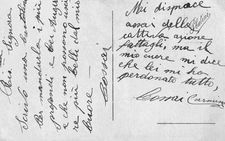 Cara Signora
Scrivo una
domandarle i più
profondi e
e che non possono
re più belle dal mio
cuore —
Cossai
Mi dispiace
assai della
cattiva azione
fattagli, ma il
mio cuore mi dice
che lei mi ha
perdonato tutto,
Cossai